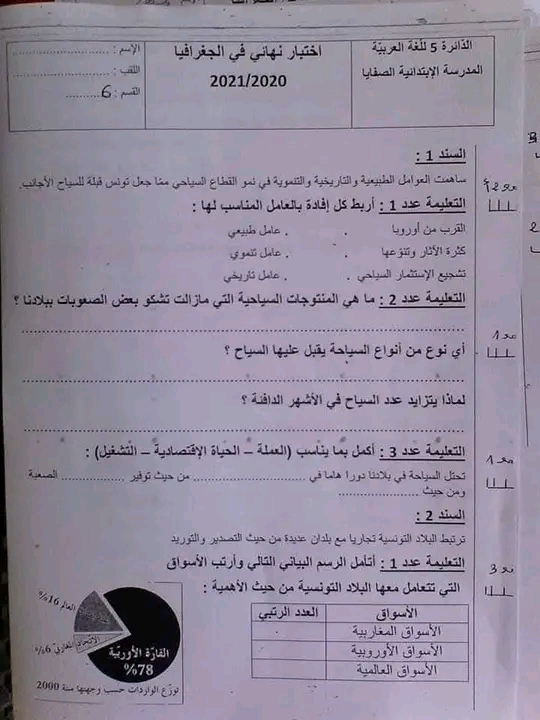 الدّائرة 5 للّغة العربيّة
المدرسة الإبتدائية الصفايا
اختبار نهائي في الجغرافيا
2021/2020
الإسم : ........................
اللقب : ........................
القسم : 6.........
السند 1 :
ساهمت العوامل الطبيعية والتاريخية والتنموية في نمو القطاع السياحي ممّا جعل تونس قبلة للسياح الأجانب.
التعليمة عدد 1 : أربط كل إفادة بالعامل المناسب لها :
القرب من أوروبا . . عامل طبيعي
كثرة الآثار وتنوّعها . . عامل تنموي
تشجيع الإستثمار السياحي . . عامل تاريخي
التعليمة عدد 2 : ما هي المنتوجات السياحية التي مازالت تشكو بعض الصعوبات ببلادنا ؟
أي نوع من أنواع السياحة يقبل عليها السياح ؟
لماذا يتزايد عدد السياح في الأشهر الدافئة ؟
التعليمة عدد 3 : أكمل بما يناسب (العملة – الحياة الإقتصادية – التّشغيل) :
تحتل السياحة في بلادنا دورا هاما في .................. من حيث توفير ................ الصعبة
ومن حيث ....................
السند 2 :
ترتبط البلاد التونسية تجاريا مع بلدان عديدة من حيث التصدير والتوريد
التعليمة عدد 1 : أتأمل الرسم البياني التالي وأرتب الأسواق
التي تتعامل معها البلاد التونسية من حيث الأهمية :
الأسواق العدد الرتبي
الأسواق المغاربية
الأسواق الأوروبية
الأسواق العالمية
العالم 16%
الاتحاد المغاربي 6%
القارّة الأوربية
78%
توزّع الواردات حسب وجهتها سنة 2000
مع 1
مع 1
مع 3